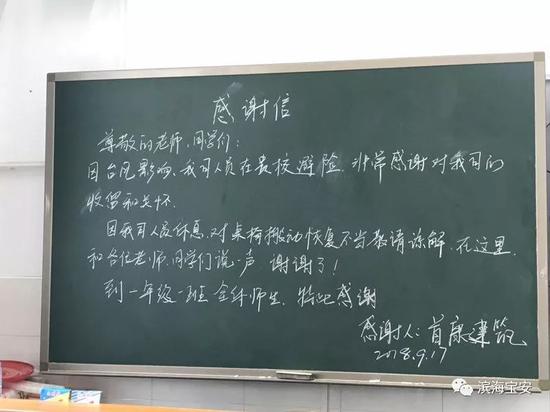 感谢信
尊敬的老师、同学们：
因台风影响、我司人员在贵校避险、非常感谢对我司的
收留和关怀.
因我司人员休息、对桌椅搬动恢复不当敬请谅解、在这里
和各位老师、同学们说一声 谢谢了！
到一年级一班全体师生、特此感谢
感谢人：首康建筑
2018.9.17
滨海宝安